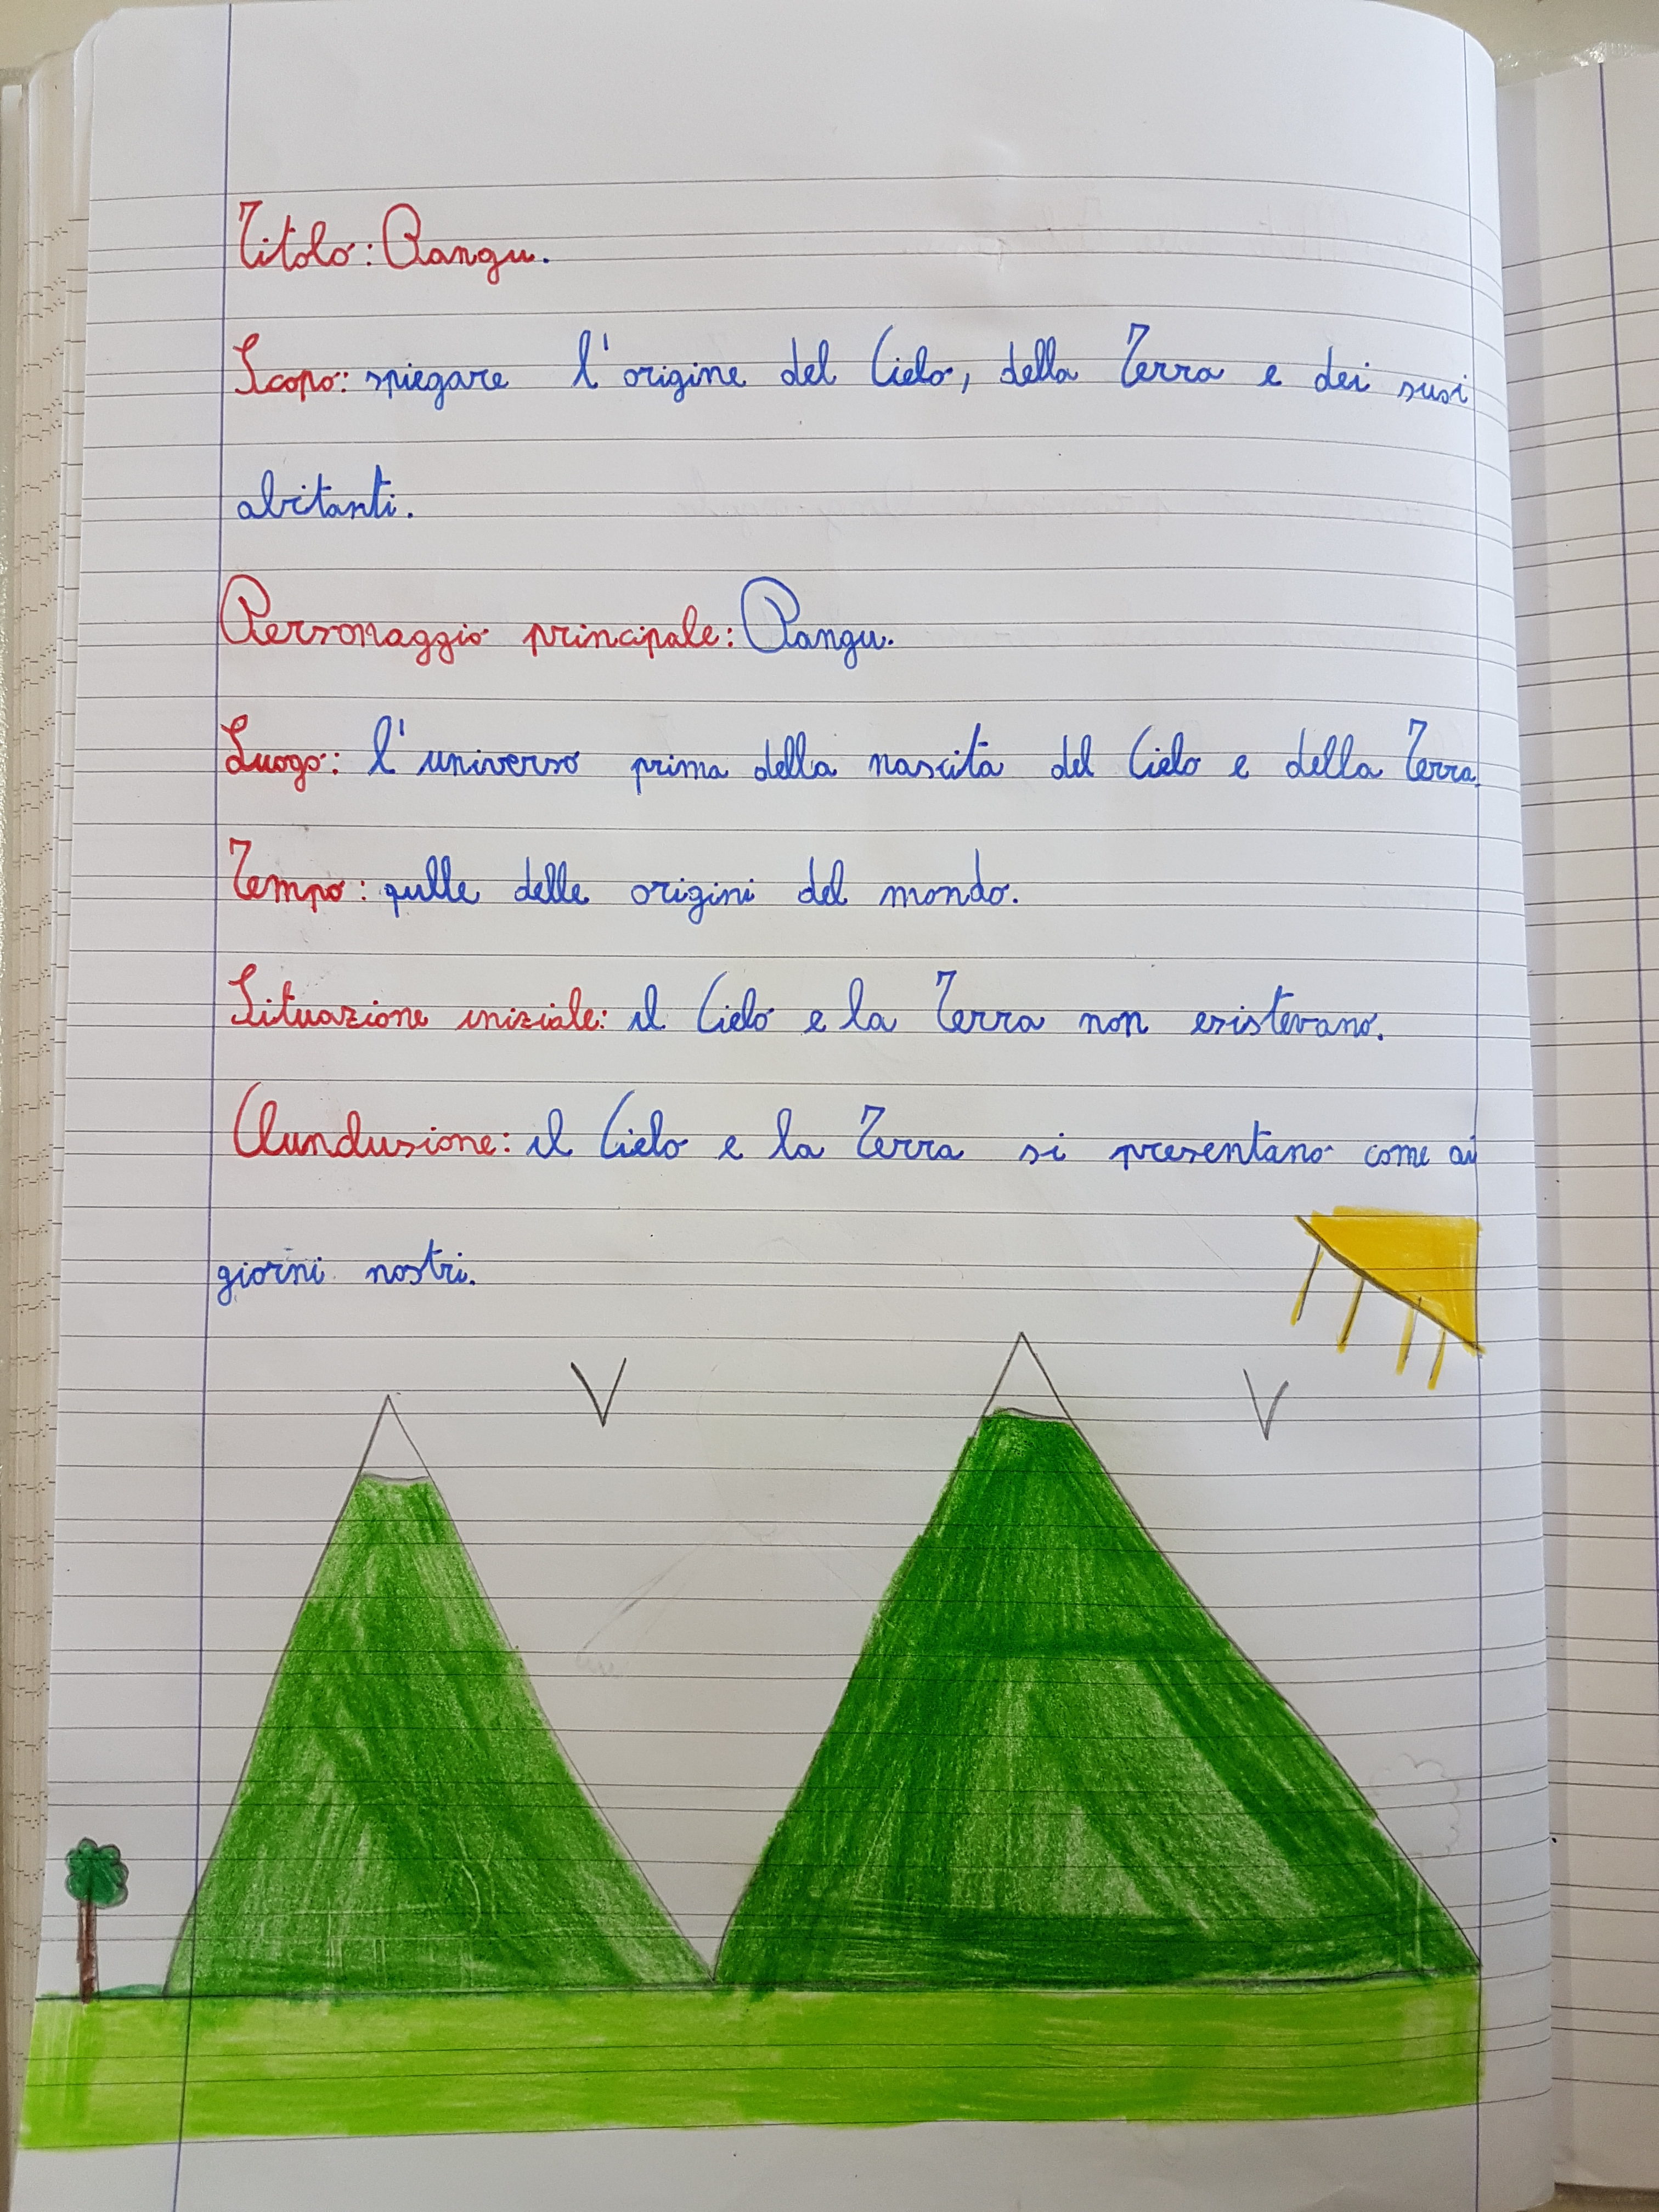 Titolo: Pangu.
Scopo: spiegare l'origine del Cielo, della Terra e dei suoi
abitanti.
Personaggio principale: Pangu.
Luogo: l'universo prima della nascita del Cielo e della Terra.
Tempo: qulle delle origini del mondo.
Situazione iniziale: il Cielo e la Terra non esistevano.
Cunclusione: il Cielo e la Terra si presentano come ai
giorni nostri.